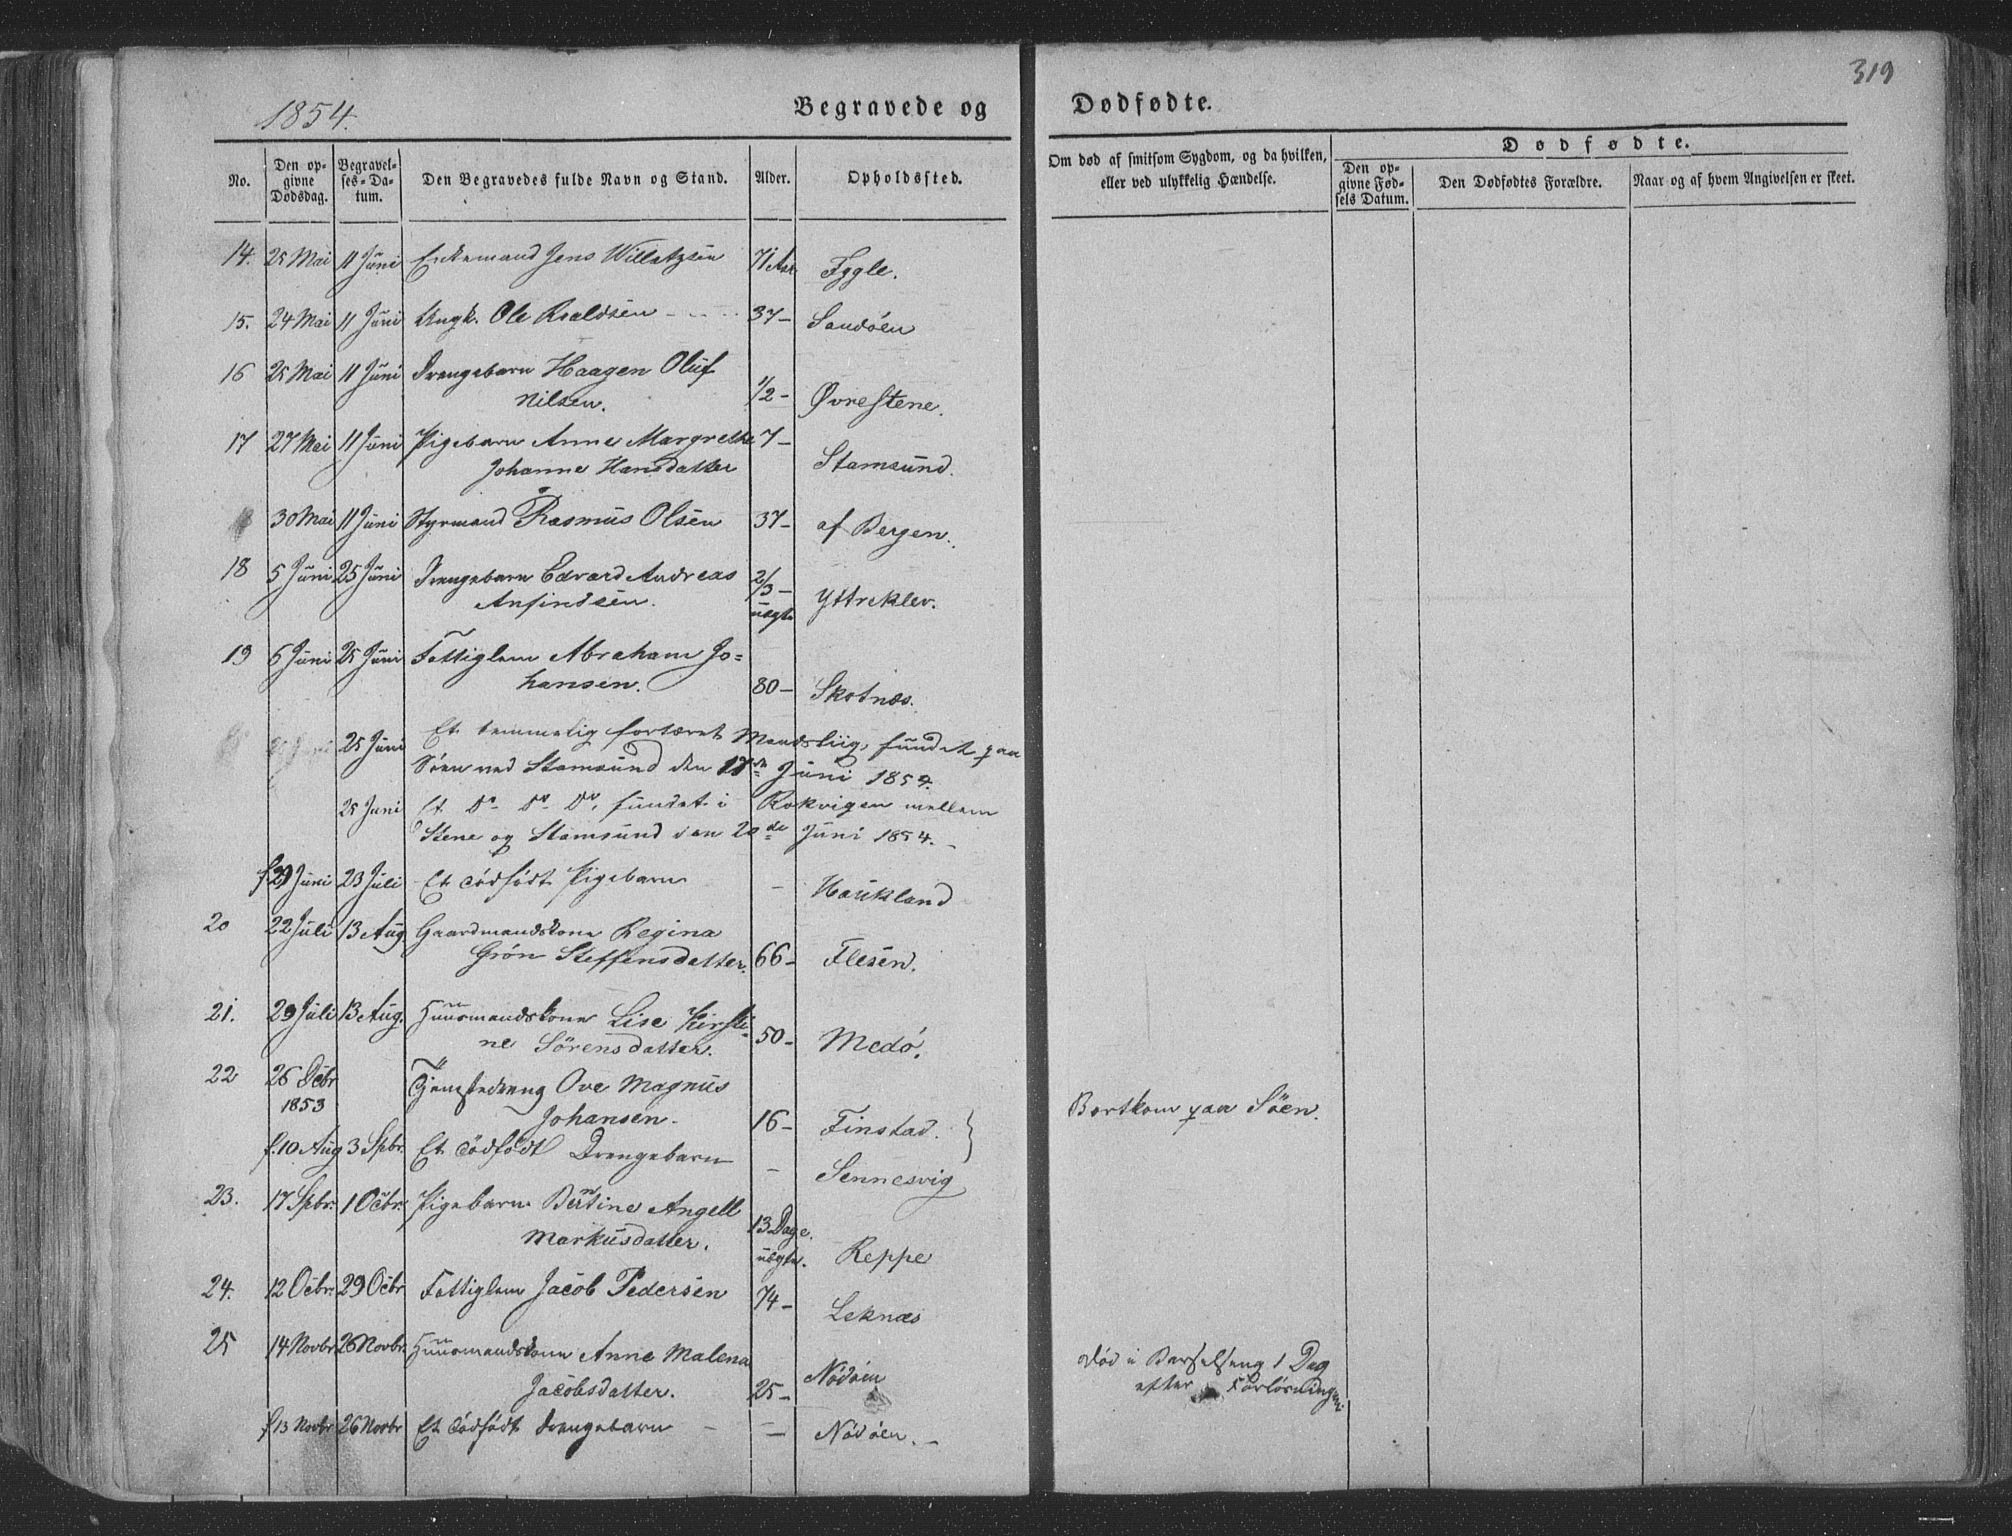 319
1854.
Begravede og Dødfødte.
No. Den opgivne Dødsdag. Begravelses-Datum. Den Begravedes fulde Navn og Stand. Alder. Opholdssted.
Om død af smitsom Sygdom, og da hvilken, eller ved ulykkelig Hændelse.
Dødfødte.
Den opgivne Fødsels Datum. Den Dødfødtes Forældre. Naar og af hvem Angivelsen er skeet.
14. 25 Mai 11 Juni Enkemand Jens Willatzsen 71 Aar Fygle.
15. 24 Mai 11 Juni Ungk. Ole Roaldsen 37 – Sandøen
16 25 Mai 11 Juni Drengebarn Haagen Oluf
Nilsen. 1/2 – Øvre Stene.
17 27 Mai 11 Juni Pigebarn Anne Margrethe 7 –
Johanne Hansdatter Stamsund.
30 Mai 11 Juni Styrmand Rasmus Olsen 37 – af Bergen.
18 5 Juni 25 Juni Drengebarn Edvard Andreas 2/3 –
Anfindsen. uægte Yttreklev.
19 6 Juni 25 Juni Fattiglem Abraham Jo=
hansen. 80 – Skotnæs.
25 Juni Et temmelig fortæret Mandsliig, fundet paa
Søen ved Stamsund den 17de Juni 1854.
25 Juni Et Do Do Do, fundet i Rokvigen mellem
Stene og Stamsund den 20de Juni 1854. –
f. 29 Juni 23 Juli Et dødfødt Pigebarn – Haukland
20 22 Juli 13 Aug Gaardmandskone Regina
Grøn Steffensdatter. 66 – Flesen.
21. 29 Juli 13 Aug. Huusmandskone Lise Kirsti-
ne Sørensdatter. 50 – Medø.
22 26 Octbr 1853 Tjenestedreng Ove Magnus
Johansen. 16 – Finstad. Bortkom paa Søen.
f. 10 Aug 3 Spbr. Et dødfødt Drengebarn – Sennesvig
23. 17 Spbr. 1 Octbr. Pigebarn Berntine Angell 13 Dage.
Markusdatter. uægte. Reppe
24. 12 Octbr. 29 Octbr Fattiglem Jacob Pedersen 74 – Leknæs
25 14 Novbr. 26 Novbr. Huusmandskone Anne Malena
Jacobsdatter. 25 – Nødøen død i Barselseng 1 Dag
efter Forløsningen
f. 13 Novbr 26 Novbr Et dødfødt Drengebarn – – Nødøen. –